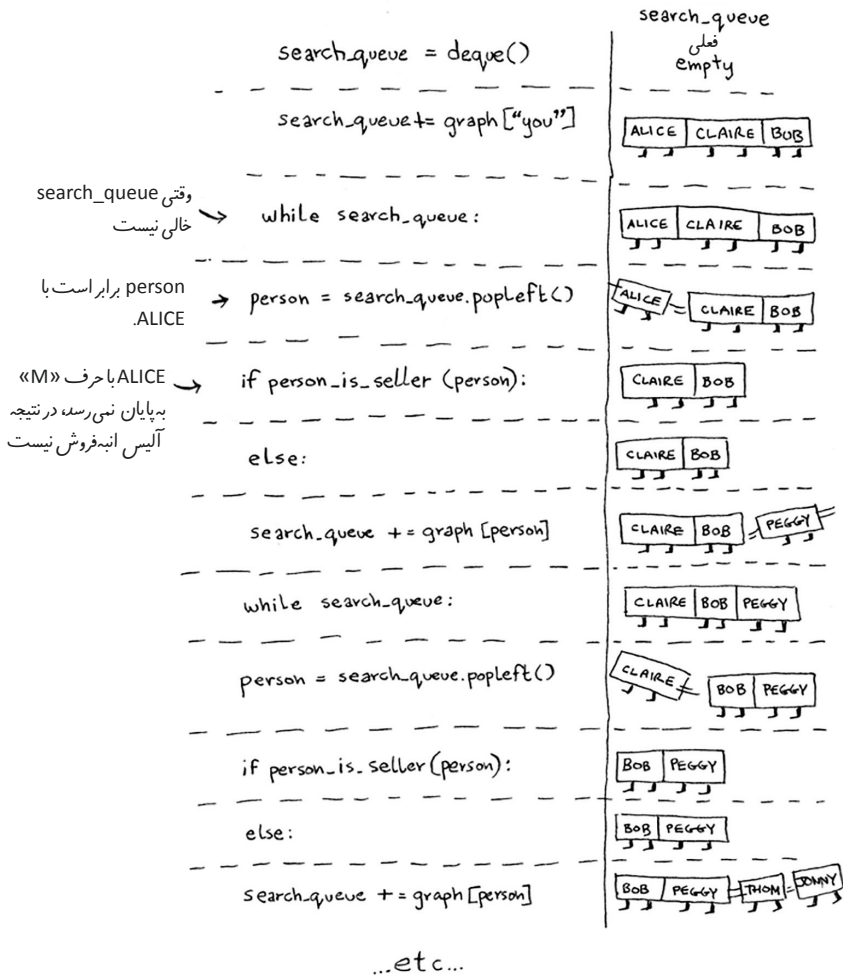 search_queue
فعلی
empty
search_queue = deque()
search_queue += graph["you"]
ALICE CLAIRE BOB
وقتی search_queue
خالی نیست
while search_queue:
ALICE CLAIRE BOB
person برابر است با
ALICE.
person = search_queue.popleft()
ALICE CLAIRE BOB
ALICE با حرف «M»
به پایان نمی‌رسد، در نتیجه
آلیس انبه‌فروش نیست
if person_is_seller (person):
CLAIRE BOB
else:
CLAIRE BOB
search_queue += graph [person]
CLAIRE BOB PEGGY
while search_queue:
CLAIRE BOB PEGGY
person = search_queue.popleft()
CLAIRE BOB PEGGY
if person_is_seller (person):
BOB PEGGY
else:
BOB PEGGY
search_queue += graph [person]
BOB PEGGY THOM JONNY
...etc...